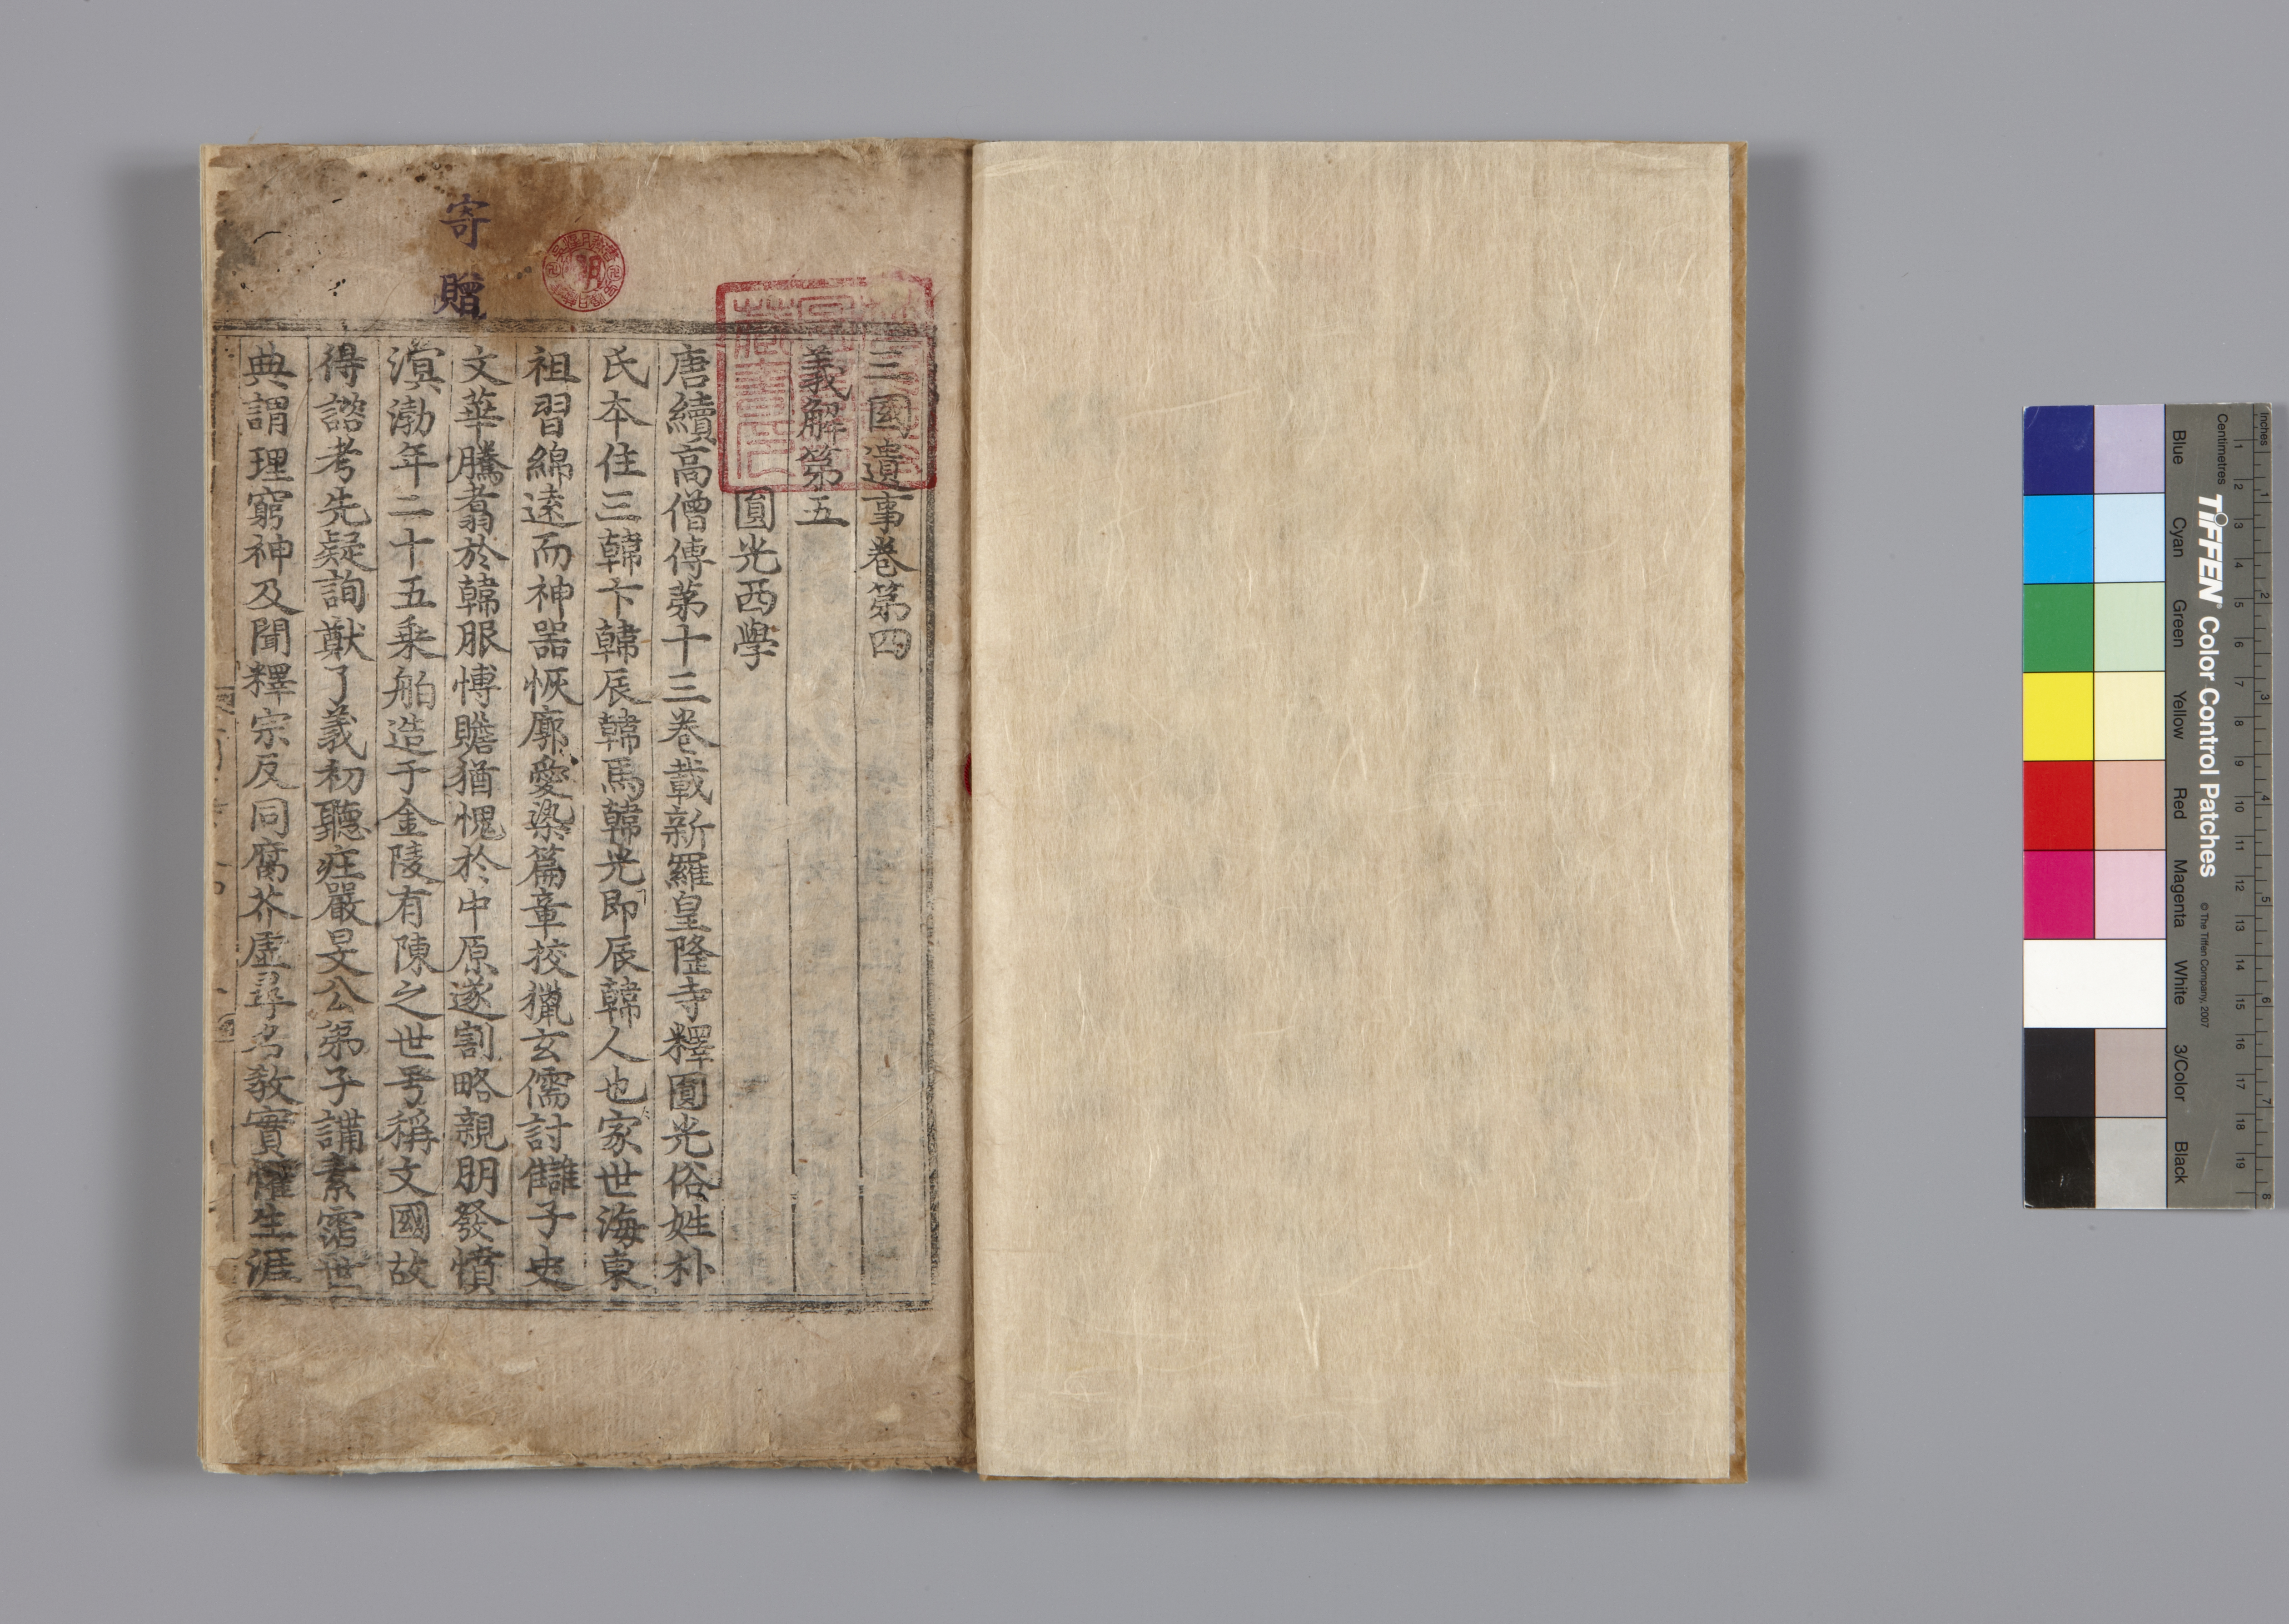 寄贈
三國遺事卷第四
義解第五
圓光西學
唐續高僧傳第十三卷載新羅皇隆寺釋圓光俗姓朴
氏本住三韓卞韓辰韓馬韓光即辰韓人也家世海東
祖習綿遠而神器恢廓愛染篇章挍獵玄儒討讎子史
文華騰翥於韓服愽贍猶愧於中原遂割略親朋發憤
溟渤年二十五乗舶造于金陵有陳之世号稱文國故
得諮考先疑詢猷了義初聽庄嚴旻公弟子講素霑世
典謂理窮神及聞釋宗反同腐芥虛尋名敎實懼生涯
Inches
Centimetres
1 2 3 4 5 6 7 8
1 2 3 4 5 6 7 8 9 10 11 12 13 14 15 16 17 18 19
TIFFEN® Color Control Patches
© The Tiffen Company, 2007
Blue Cyan Green Yellow Red Magenta White 3/Color Black